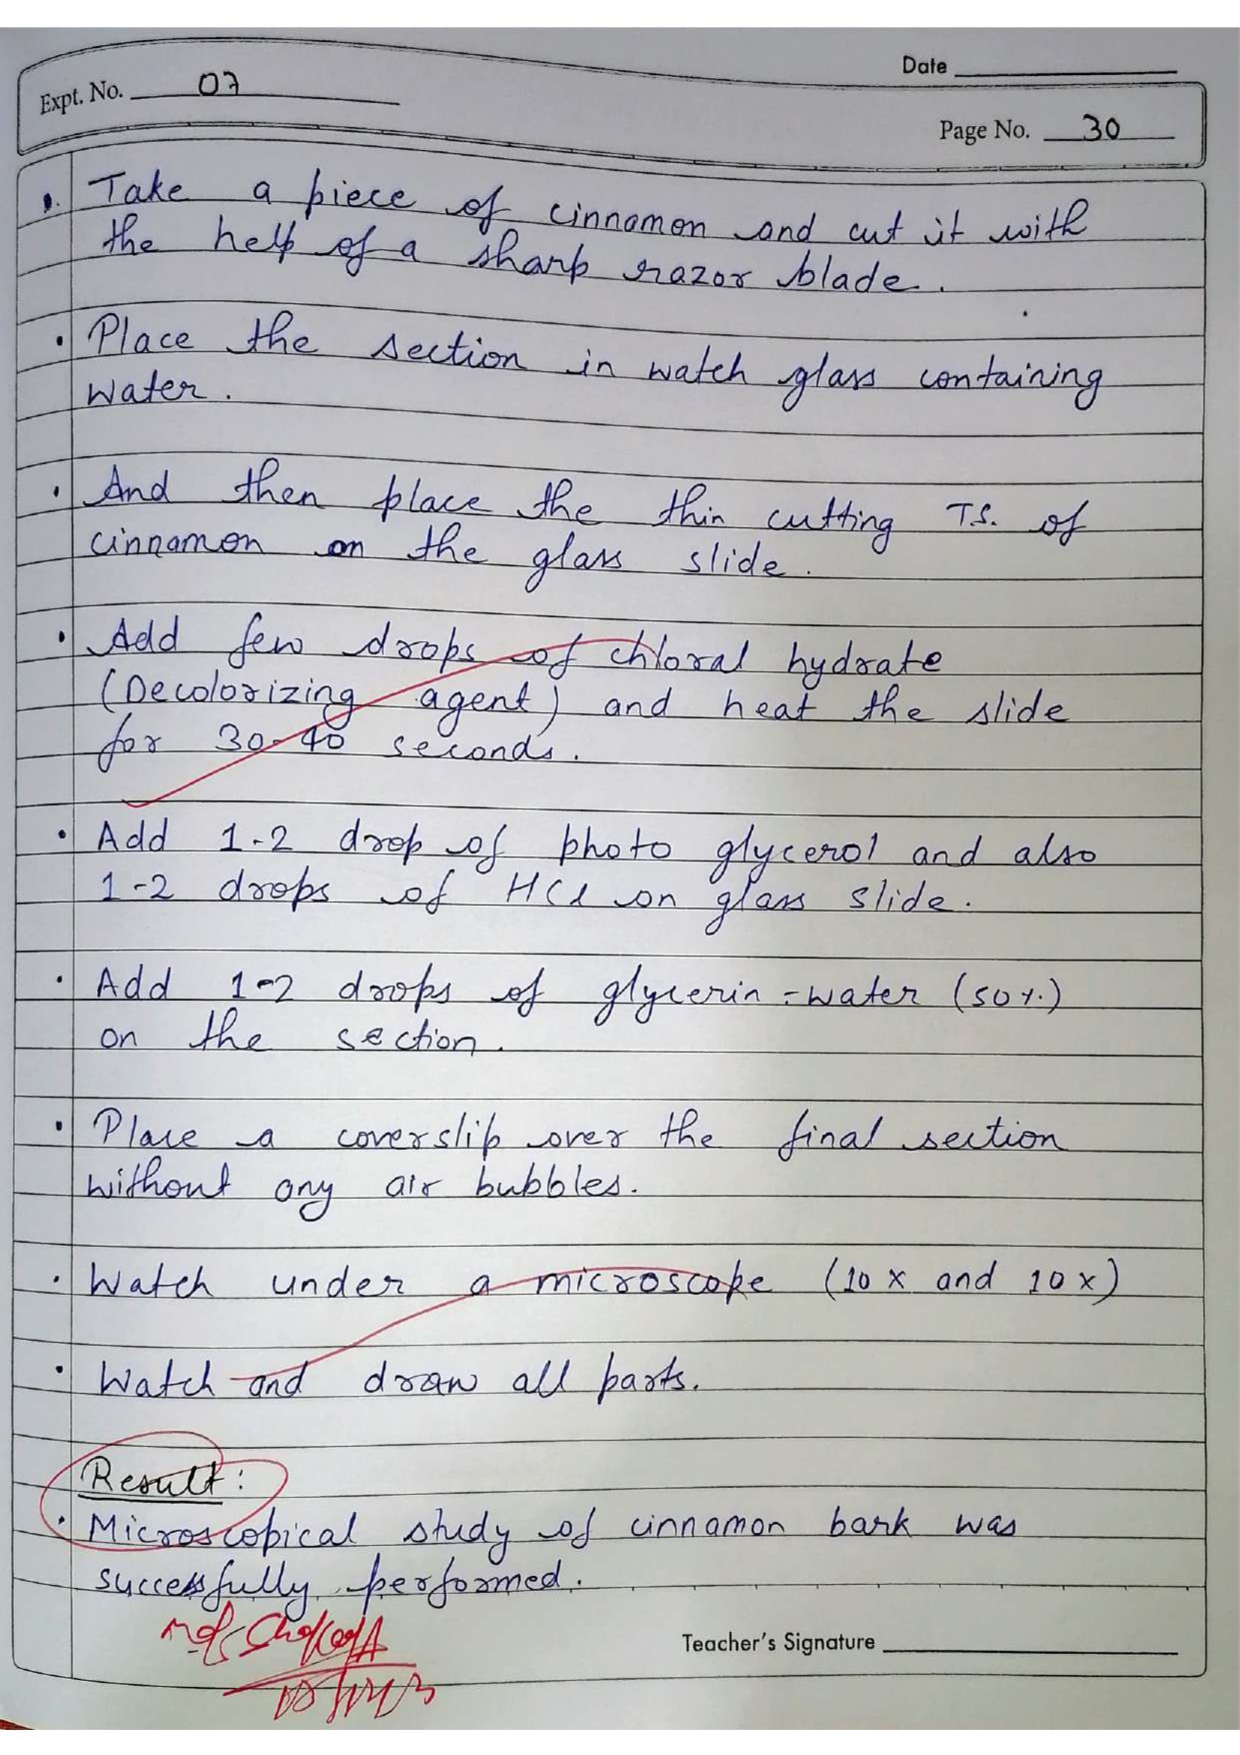 Date
Expt. No. 07
Page No. 30
Take a piece of cinnamon and cut it with
the help of a sharp razor blade.
• Place the section in watch glass containing
water.
• And then place the thin cutting T.S. of
cinnamon on the glass slide.
• Add few drops of chloral hydrate
(Decolorizing agent) and heat the slide
for 30-40 seconds.
• Add 1-2 drop of photo glycerol and also
1-2 drops of HCl on glass slide.
• Add 1-2 drops of glycerin-water (50%)
on the section.
• Place a coverslip over the final section
without any air bubbles.
• Watch under a microscope (10x and 10x)
• Watch and draw all parts.
Result:
• Microscopical study of cinnamon bark was
successfully performed.
Teacher's Signature